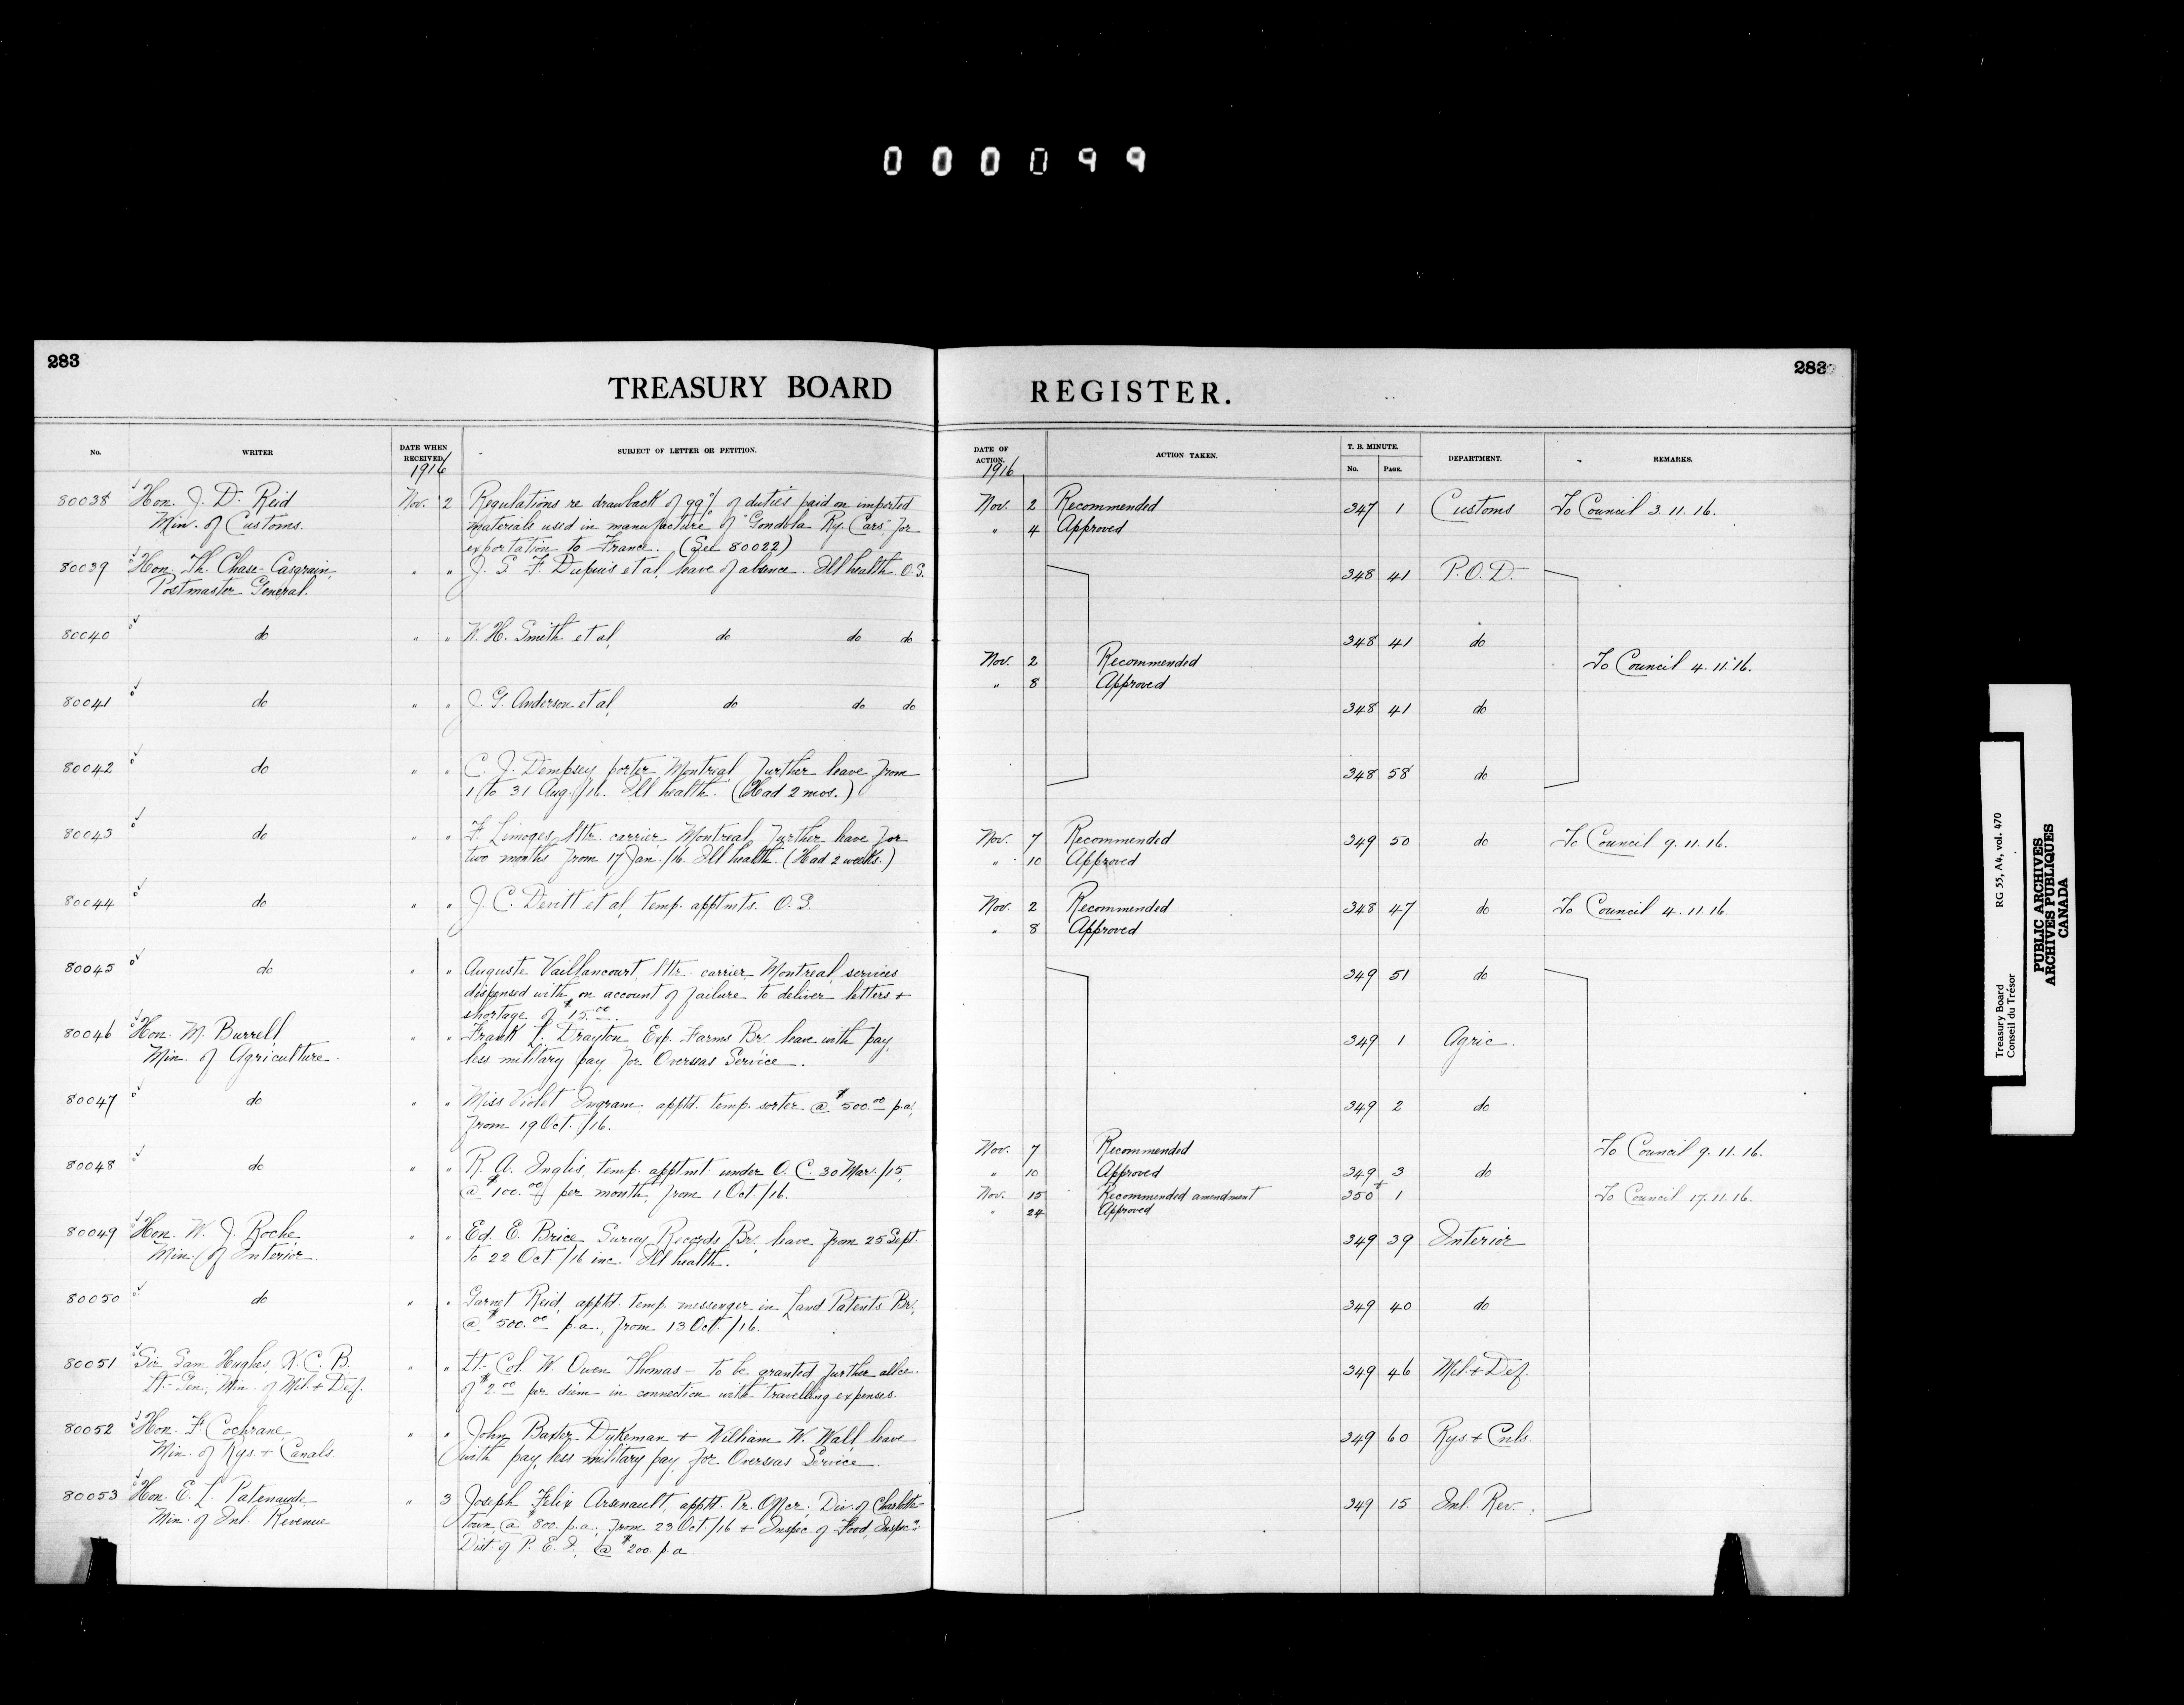 000099
283
TREASURY BOARD
No.
WRITER
DATE WHEN RECEIVED.
1916
SUBJECT OF LETTER OR PETITION.
80038 Hon. J. D. Reid Nov. 2 Regulations re drawback of 99% of duties paid on imported
Min. of Customs. materials used in manufacture of "Gondola Ry. Cars" for
exportation to France. (See 80022)
80039 Hon. Th. Chase-Casgrain, " " J. S. F. Dupuis et al, leave of absence. Ill health O.S.
Postmaster General.
80040 do " " W. H. Smith et al, do do do
80041 do " " J. G. Anderson et al, do do do
80042 do " " C. J. Dempsey, porter, Montreal, further leave from
1 to 31 Aug./16. Ill health. (Had 2 mos.)
80043 do " " F. Limoges, lttr. carrier Montreal, further leave for
two months from 17 Jan./16. Ill health. (Had 2 weeks.)
80044 do " " J. C. Devitt et al, temp. apptmts. O.S.
80045 do " " Auguste Vaillancourt, lttr. carrier, Montreal, services
dispensed with on account of failure to deliver letters +
shortage of $15.00.
80046 Hon. M. Burrell " Frank L. Drayton, Exp. Farms Br. leave with pay,
Min. of Agriculture. less military pay, for Overseas Service.
80047 do " " Miss Violet Ingram, apptd. temp. sorter @ $500.00 p.a.,
from 19 Oct./16.
80048 do " " R. A. Inglis, temp. apptmt. under O. C. 30 Mar./15,
@ $100.00 per month, from 1 Oct./16.
80049 Hon. W. J. Roche, " " Ed. E. Brice, Survey Records Br., leave from 25 Sept.
Min. of Interior. to 22 Oct./16 inc. Ill health.
80050 do " " Garnet Reid, apptd. temp. messenger in Land Patents Br.,
@ $500.00 p.a., from 13 Oct./16.
80051 Sir Sam Hughes, K. C. B. " " Lt.-Col. W. Owen Thomas - to be granted further allce.
Lt-Gen., Min. of Mil. + Def. of $2.00 per diem in connection with travelling expenses.
80052 Hon. F. Cochrane, " " John Baxter Dykeman + William W. Wall, leave
Min. of Rys. + Canals. with pay, less military pay, for Overseas Service.
80053 Hon. E. L. Patenaude " 3 Joseph Felix Arsenault, apptd. Pr. Offcr. Div. of Charlotte-
Min. of Inl. Revenue town, @ $800. p.a., from 23 Oct./16 + Inspec. of Food, Inspec'n.
Dist. of P. E. I., @ $200. p.a.
283
REGISTER.
DATE OF ACTION.
1916
ACTION TAKEN.
T. B. MINUTE.
No. PAGE.
DEPARTMENT.
REMARKS.
Nov. 2 Recommended 347 1 Customs To Council 3.11.16.
" 4 Approved
348 41 P.O.D.
348 41 do
Nov. 2 Recommended To Council 4.11.16.
" 8 Approved
348 41 do
348 58 do
Nov. 7 Recommended 349 50 do To Council 9.11.16.
" 10 Approved
Nov. 2 Recommended 348 47 do To Council 4.11.16
" 8 Approved
349 51 do
349 1 Agric.
349 2 do
Nov. 7 Recommended To Council 9.11.16.
" 10 Approved 349 3 do
Nov. 15 Recommended amendment + 350 1 To Council 17.11.16.
" 24 Approved
349 39 Interior
349 40 do
349 46 Mil. + Def.
349 60 Rys. + Cnls.
349 15 Inl. Rev.
Treasury Board RG 55, A4, vol. 470
Conseil du Trésor
PUBLIC ARCHIVES
ARCHIVES PUBLIQUES
CANADA